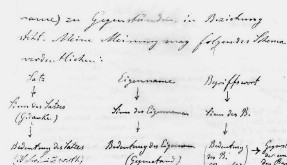 name) zu Gegenständen in Beziehung
steht. Meine Meinung mag folgendes Schema
verdeutlichen:
Satz Eigenname Begriffswort
↓ ↓ ↓
Sinn des Satzes Sinn des Eigennamens Sinn des B.
(Gedanke)
↓ ↓ ↓
Bedeutung des Satzes Bedeutung des Eigennamens Bedeutung →
(Wahrheitswerth) (Gegenstand) des B.